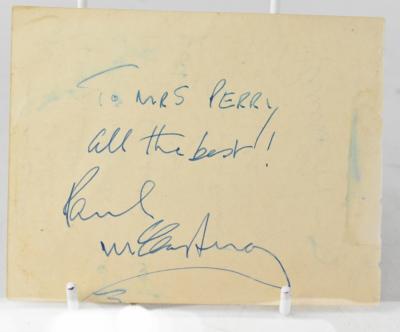 To MRS PERRY
all the best!
Paul
McCartney